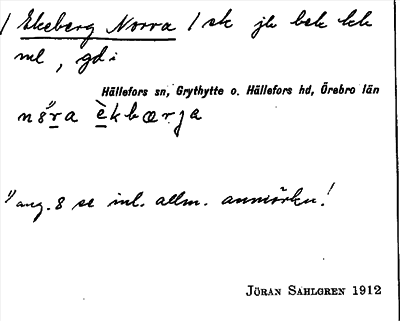 / Ekeberg Norra / sk jb bek kk
ml, gdi
Hällefors sn, Grythytte o. Hällefors hd, Örebro län
n 8 r a è k b œ r j a
1) ang. 8 se inl. allm. anmärkn.!
JÖRAN SAHLGREN 1912